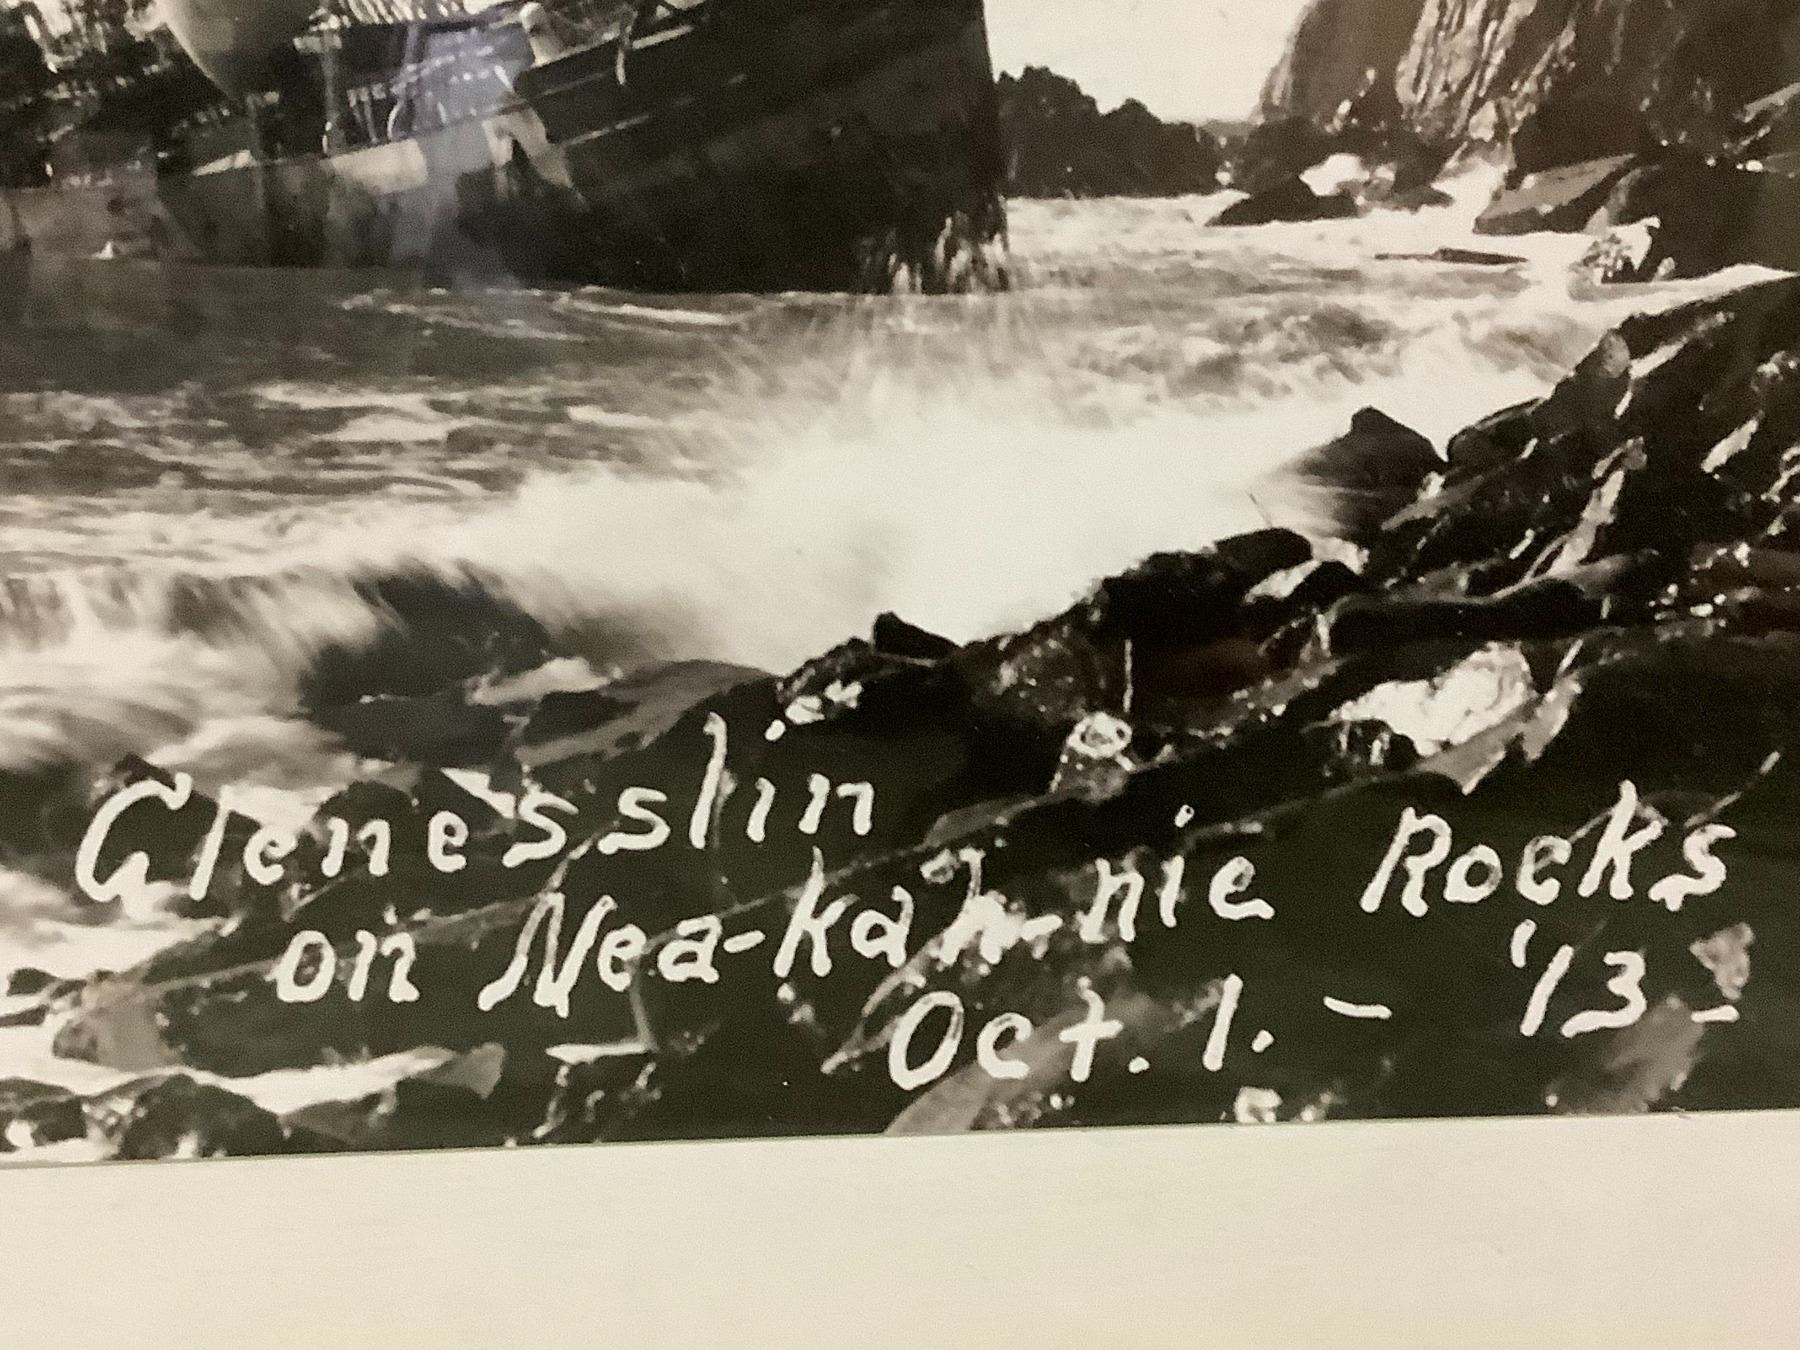 Glenesslin
on Nea-kah-nie Rocks
Oct. 1. - '13-